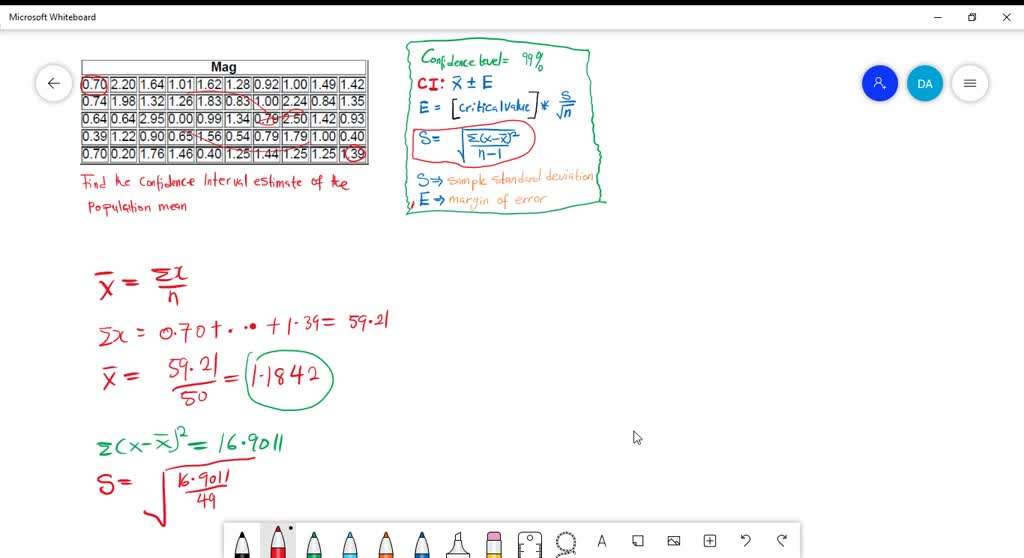 Microsoft Whiteboard
Mag
0.70 2.20 1.64 1.01 1.62 1.28 0.92 1.00 1.49 1.42
0.74 1.98 1.32 1.26 1.83 0.83 1.00 2.24 0.84 1.35
0.64 0.64 2.95 0.00 0.99 1.34 0.79 2.50 1.42 0.93
0.39 1.22 0.90 0.65 1.56 0.54 0.79 1.79 1.00 0.40
0.70 0.20 1.76 1.46 0.40 1.25 1.44 1.25 1.25 1.39
Find the Confidence Interval estimate of the
Population mean
Confidence level = 99%
CI: x̄ ± E
E = [critical value] * s/√n
S = √(Σ(x-x̄)²/(n-1))
S ⇒ sample standard deviation
E ⇒ margin of error
DA
x̄ = Σx/n
Σx = 0.70 + . . • + 1.39 = 59.21
x̄ = 59.21/50 = 1.1842
Σ(x-x̄)² = 16.9011
S = √(16.9011/49)
A